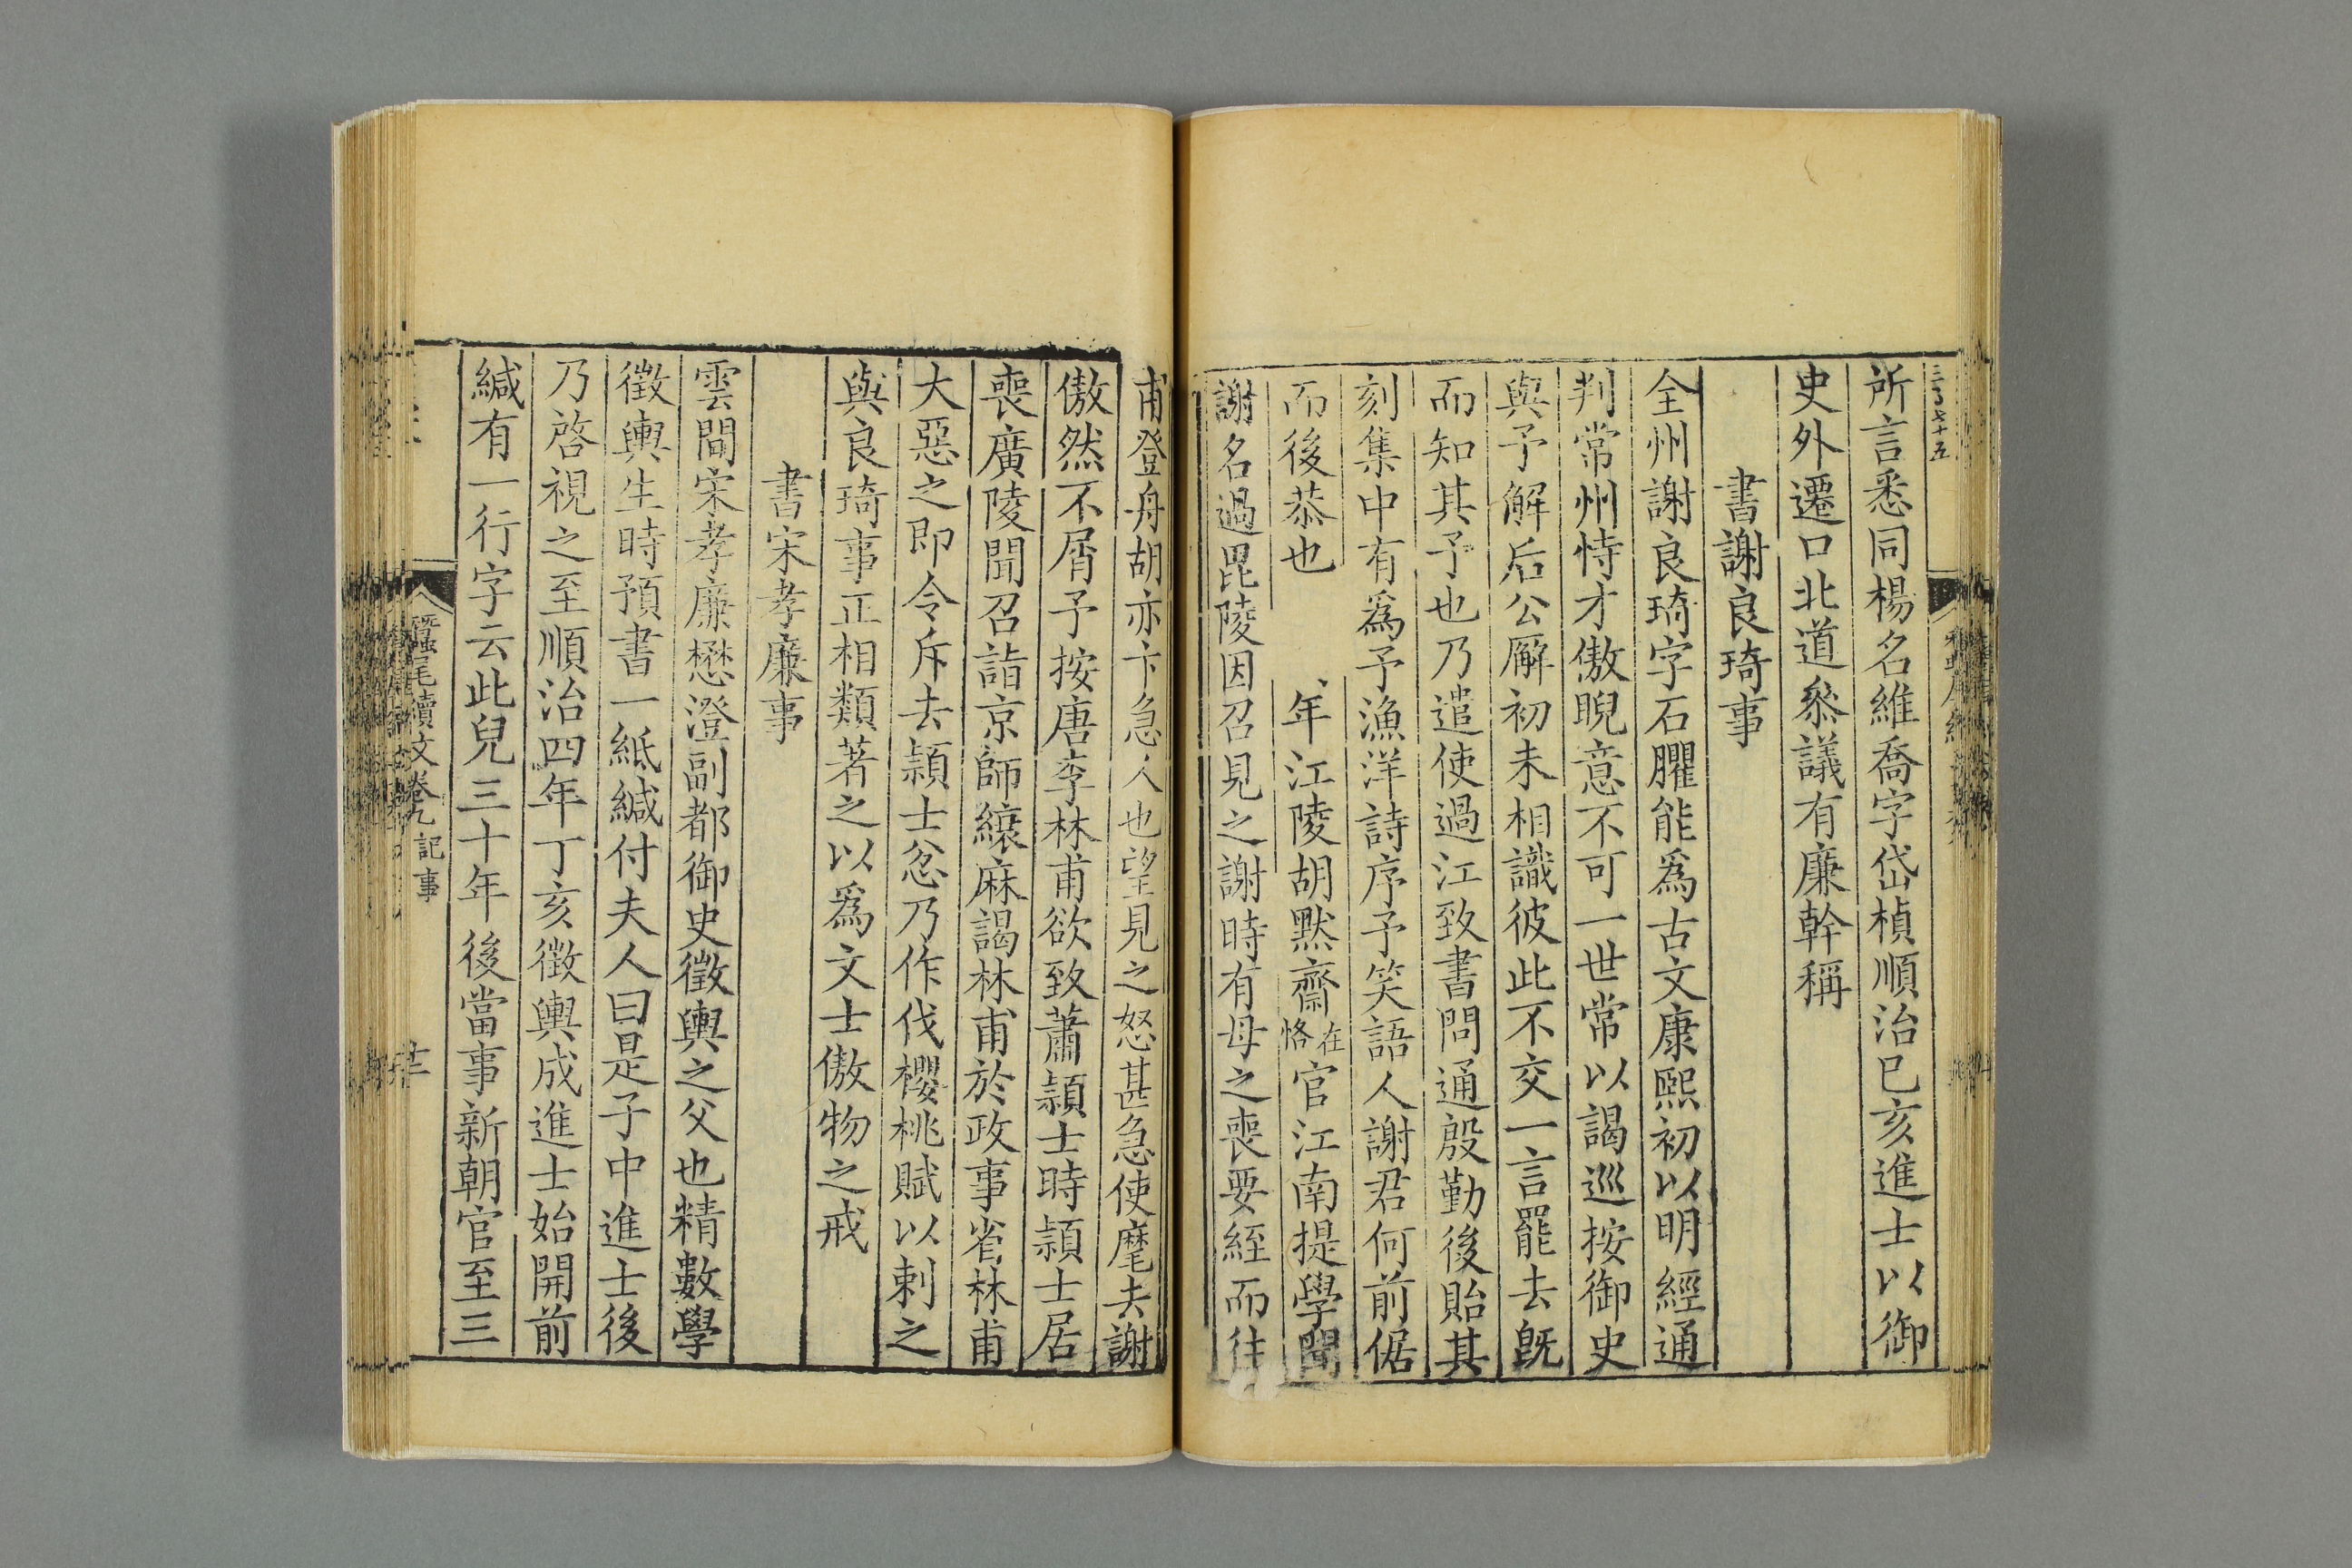 三百七十五
所言悉同楊名維喬字岱楨順治己亥進士以御
史外遷口北道叅議有廉幹稱
書謝良琦事
全州謝良琦字石臞能爲古文康熙初以明經通
判常州恃才傲睨意不可一世常以謁巡按御史
與予解后公廨初未相識彼此不交一言罷去旣
而知其予也乃遣使過江致書問通殷勤後貽其
刻集中有爲予漁洋詩序予笑語人謝君何前倨
而後恭也 年江陵胡黙齋在恪官江南提學聞
謝名過毘陵因召見之謝時有母之喪要絰而往
甫登舟胡亦卞急人也望見之怒甚急使麾去謝
傲然不屑予按唐李林甫欲致蕭頴士時頴士居
喪廣陵聞召詣京師縗麻謁林甫於政事省林甫
大惡之即令斥去頴士忿乃作伐櫻桃賦以刺之
與良琦事正相類著之以爲文士傲物之戒
書宋孝廉事
雲間宋孝廉懋澄副都御史徵輿之父也精數學
徵輿生時預書一紙緘付夫人曰是子中進士後
乃啓視之至順治四年丁亥徵輿成進士始開前
緘有一行字云此兒三十年後當事新朝官至三
蠶尾續文卷九 記事